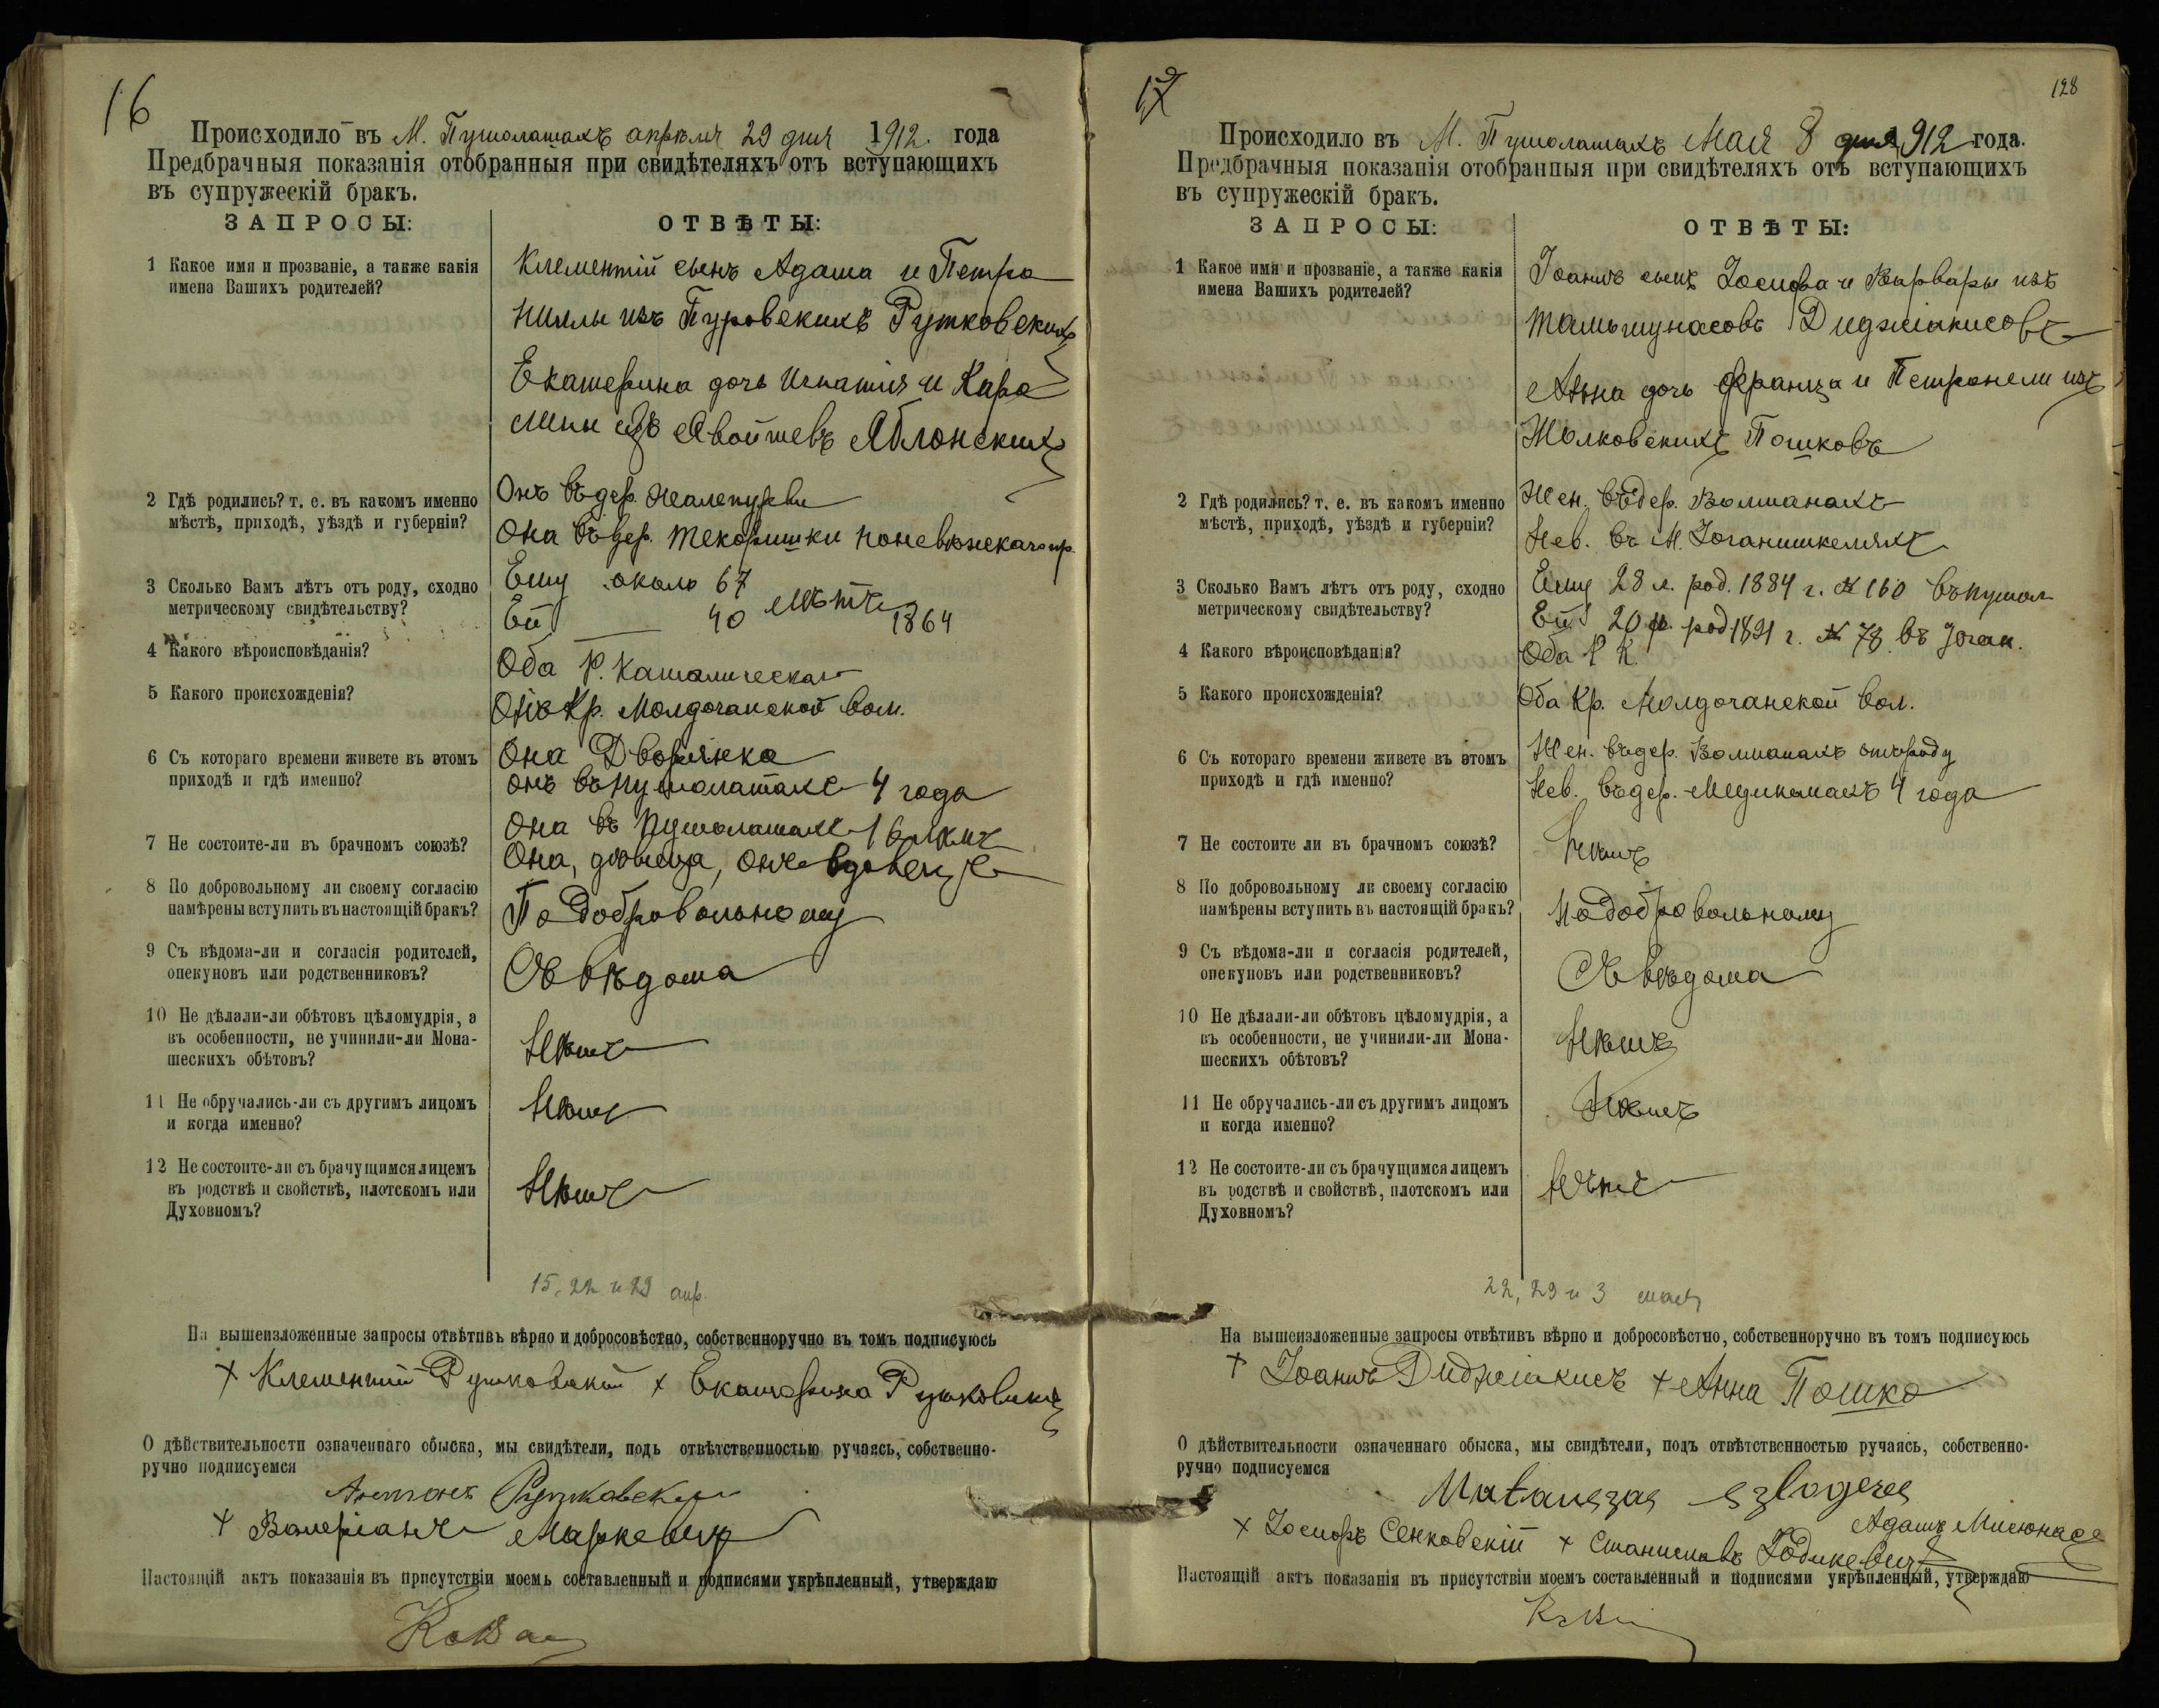 16
Происходило въ М. Пушолатахъ апрѣля 29 дня 1912 года
Предбрачныя показанія отобранныя при свидѣтеляхъ отъ вступающихъ
въ супружескій бракъ.
ЗАПРОСЫ: ОТВѢТЫ:
1 Какое имя и прозваніе, а также какія
имена Вашихъ родителей?
Клементій сынъ Адама и Петро
ниллы изъ Пуровскихъ Рутковскихъ
Екатерина дочь Игнатія и Каро
лины изъ Явойшевъ Яблонскихъ
2 Гдѣ родились? т. е. въ какомъ именно
мѣстѣ, приходѣ, уѣздѣ и губерніи?
Онъ въ дер.
Она въ дер. поневѣжскаго пр.
3 Сколько Вамъ лѣтъ отъ роду, сходно
метрическому свидѣтельству?
Ему около 67
Ей 40 лѣтъ 1864
4 Какого вѣроисповѣданія?
Оба Р. Католическаго
5 Какого происхожденія?
Онъ Кр. Молдочанской вол.
Она Дворянка
6 Съ котораго времени живете въ этомъ
приходѣ и гдѣ именно?
онъ въ Пушолатахъ 4 года
Она въ Пушолатахъ
7 Не состоите-ли въ брачномъ союзѣ?
Она, дѣвица, онъ вдовецъ
8 По добровольному ли своему согласію
намѣрены вступить въ настоящій бракъ?
По добровольному
9 Съ вѣдома-ли и согласія родителей,
опекуновъ или родственниковъ?
Съ вѣдома
10 Не дѣлали-ли обѣтовъ цѣломудрія, а
въ особенности, не учинили-ли Мона-
шескихъ обѣтовъ?
Нѣтъ
11 Не обручались-ли съ другимъ лицомъ
и когда именно?
Нѣтъ
12 Не состоите-ли съ брачущимся лицемъ
въ родствѣ и свойствѣ, плотскомъ или
Духовномъ?
Нѣтъ
15, 22 и 29 апр.
На вышеизложенные запросы отвѣтивъ вѣрно и добросовѣстно, собственноручно въ томъ подписуюсь
+ Клементий Рутковский + Екатерина
О дѣйствительности означеннаго обыска, мы свидѣтели, подъ отвѣтственностью ручаясь, собственно-
ручно подписуемся
Антонъ Рутковский
+ Валеріанъ Маркевич
Настоящій актъ показанія въ присутствіи моемъ составленный и подписями укрѣпленный, утверждаю
17
128
Происходило въ М. Пушолатахъ Мая 8 дня 1912 года.
Предбрачныя показанія отобранныя при свидѣтеляхъ отъ вступающихъ
въ супружескій бракъ.
ЗАПРОСЫ: ОТВѢТЫ:
1 Какое имя и прозваніе, а также какія
имена Вашихъ родителей?
Іоаннъ сынъ Іосифа и Варвары изъ
Тамошунасовъ Диджіакисовъ
Анна дочь Франца и Петронели изъ
Жолковскихъ Пошковъ
2 Гдѣ родились? т. е. въ какомъ именно
мѣстѣ, приходѣ, уѣздѣ и губерніи?
Жен. въ дер. Волианахъ
Нев. въ М. Іоганишкеляхъ
3 Сколько Вамъ лѣтъ отъ роду, сходно
метрическому свидѣтельству?
Ему 28 л. род. 1884 г. № 160 въ пушол
Ей 20 л. род 1891 г. № 78 въ Іоган.
4 Какого вѣроисповѣданія?
Оба Р К.
5 Какого происхожденія?
Оба Кр. Молдочанской вол.
6 Съ котораго времени живете въ этомъ
приходѣ и гдѣ именно?
Жен. въ дер. Волианахъ отъ роду
Нев. въ дер. 4 года
7 Не состоите ли въ брачномъ союзѣ?
Нѣтъ
8 По добровольному ли своему согласію
намѣрены вступить въ настоящій бракъ?
По добровольному
9 Съ вѣдома-ли и согласія родителей,
опекуновъ или родственниковъ?
Съ вѣдома
10 Не дѣлали-ли обѣтовъ цѣломудрія, а
въ особенности, не учинили-ли Мона-
шескихъ обѣтовъ?
Нѣтъ
11 Не обручались-ли съ другимъ лицомъ
и когда именно?
Нѣтъ
12 Не состоите-ли съ брачущимся лицемъ
въ родствѣ и свойствѣ, плотскомъ или
Духовномъ?
Нѣтъ
22, 29 и 3 мая
На вышеизложенные запросы отвѣтивъ вѣрно и добросовѣстно, собственноручно въ томъ подписуюсь
+ Іоаннъ Диджіакисъ + Анна Пошко
О дѣйствительности означеннаго обыска, мы свидѣтели, подъ отвѣтственностью ручаясь, собственно-
ручно подписуемся
Адамъ Мисюнасъ
+ Іосифъ Сенковскій + Станиславъ
Настоящій актъ показанія въ присутствіи моемъ составленный и подписями укрѣпленный, утверждаю